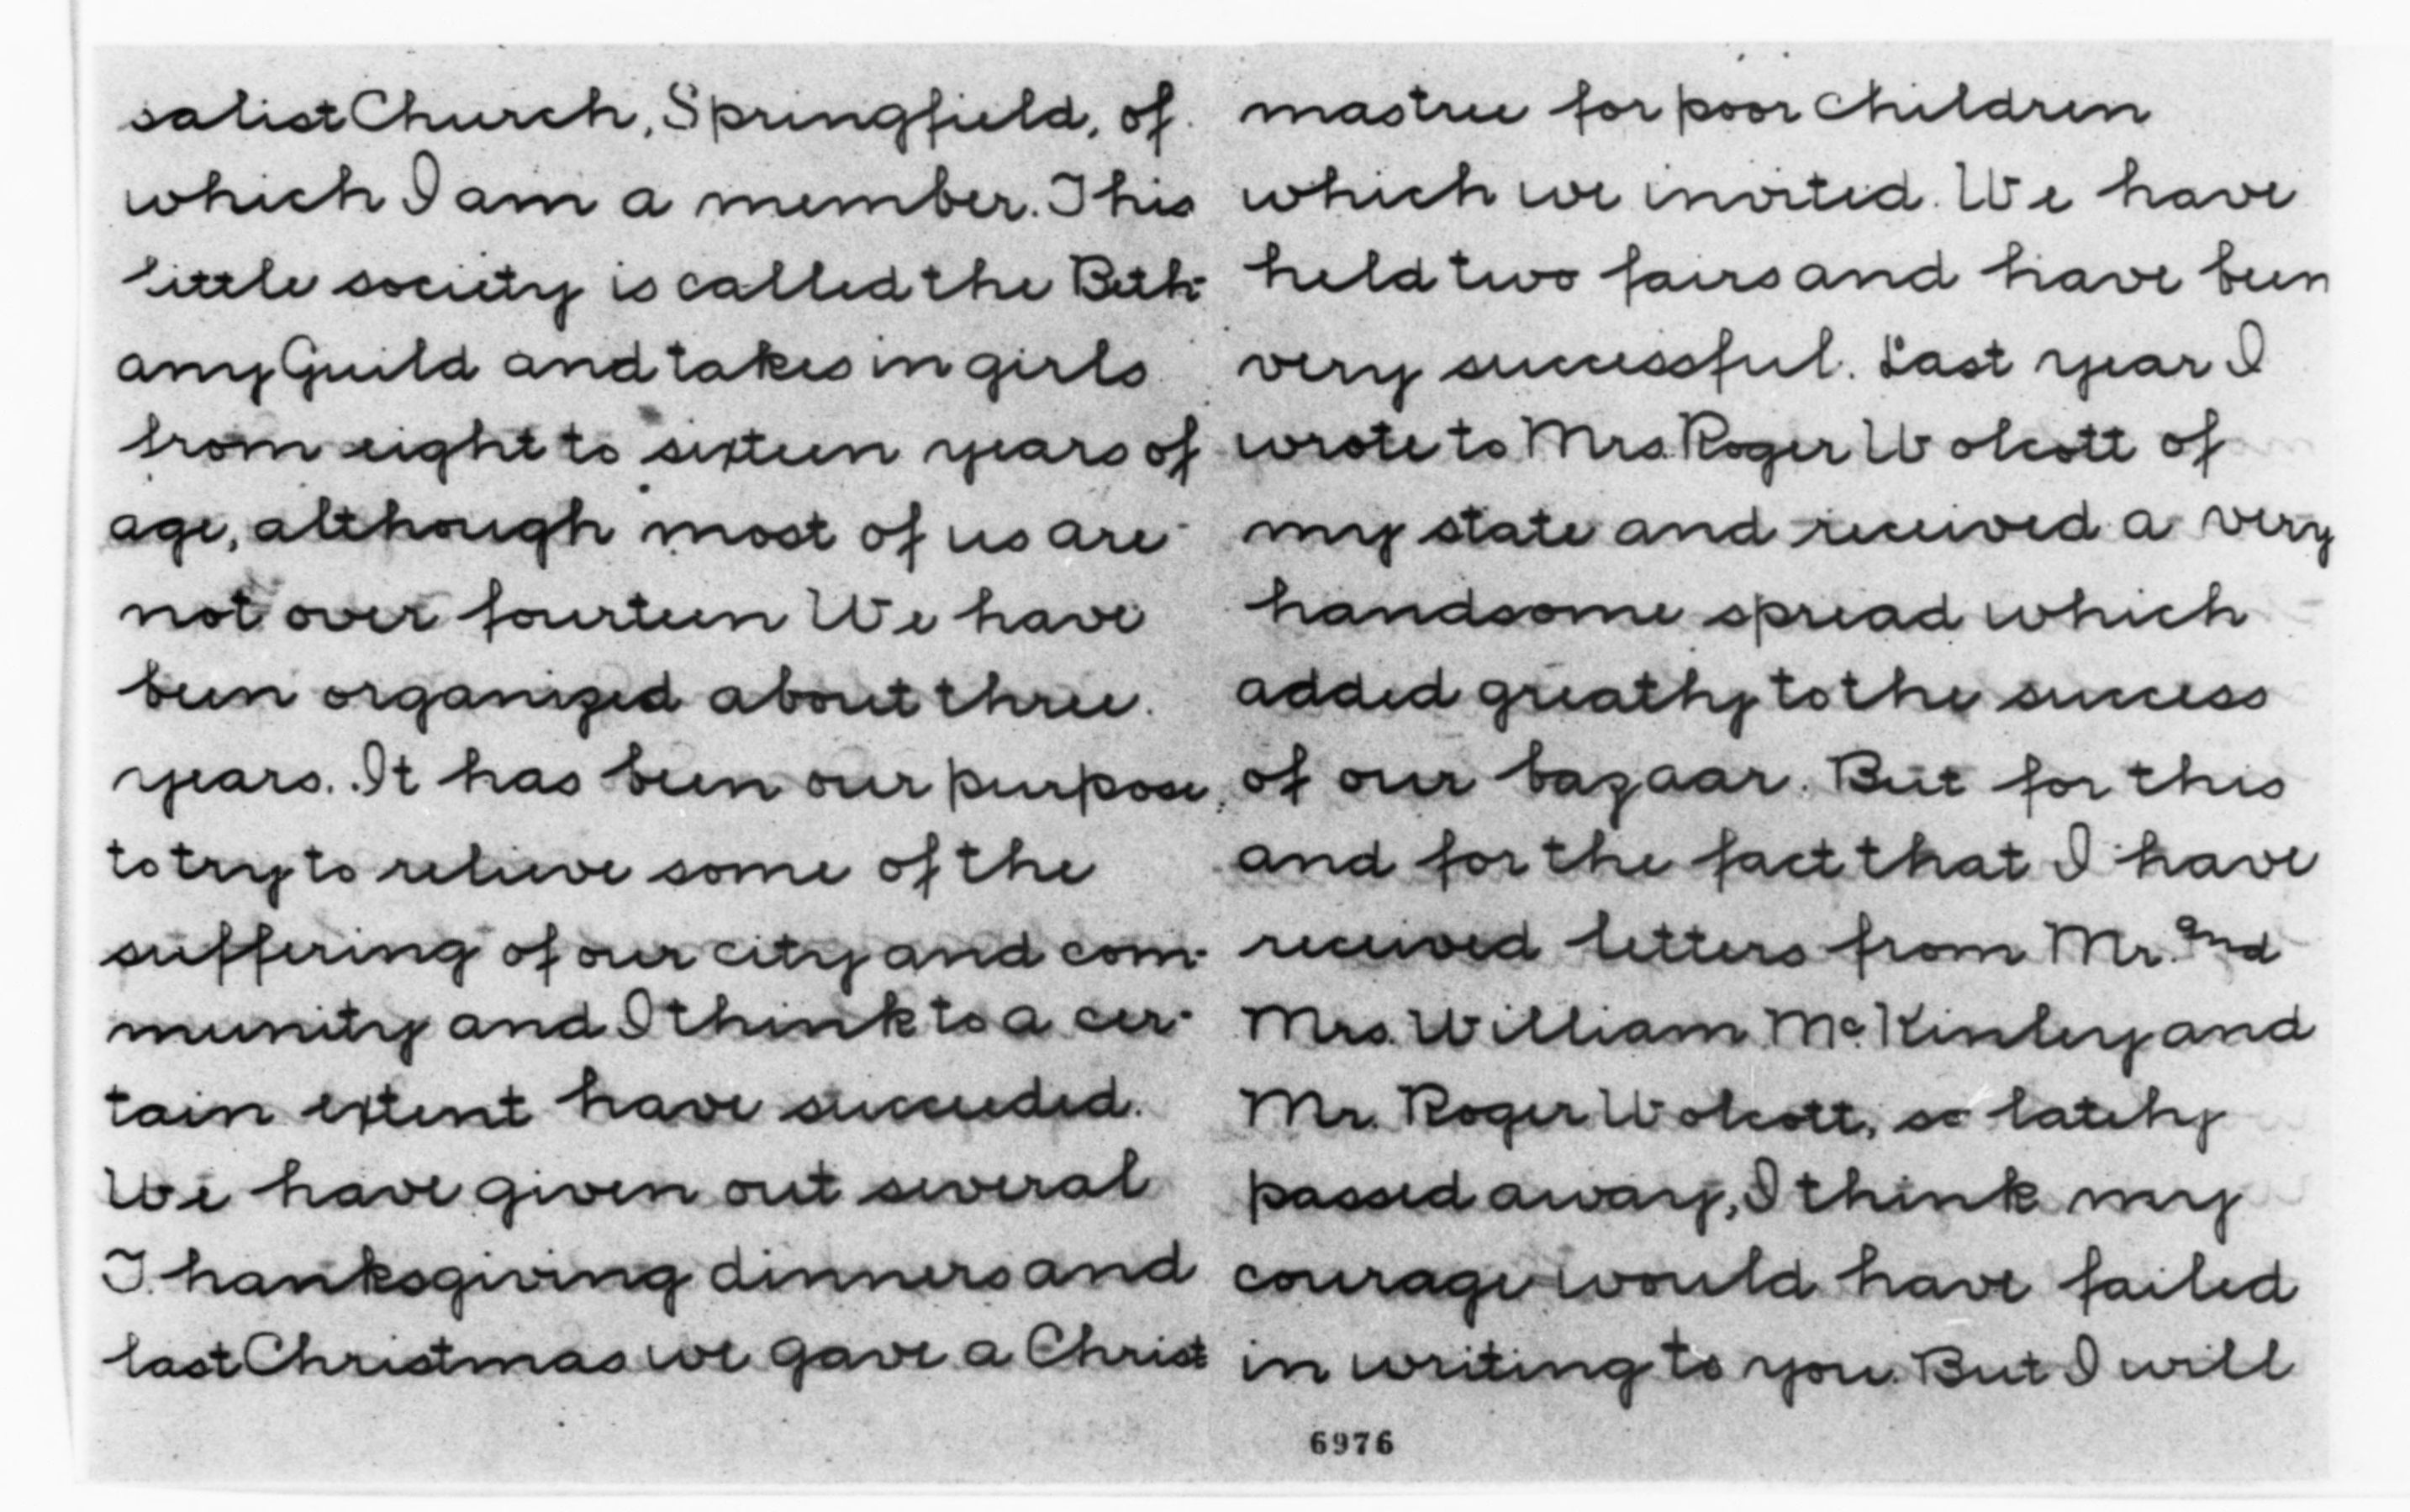 salist Church, Springfield, of
which I am a member. This
little society is called the Beth-
any Guild and takes in girls
from eight to sixteen years of
age, although most of us are
not over fourteen We have
been organized about three
years. It has been our purpose
to try to relieve some of the
suffering of our city and com-
munity and I think to a cer-
tain extent have succeeded.
We have given out several
Thanksgiving dinners and
last Christmas we gave a Christ
mastree for poor children
which we invited. We have
held two fairs and have been
very successful. Last year I
wrote to Mrs. Roger Wolcott of
my state and received a very
handsome spread which
added greatly to the success
of our bazaar. But for this
and for the fact that I have
received letters from Mr. and
Mrs. William McKinley and
Mr. Roger Wolcott, so lately
passed away, I think my
courage would have failed
in writing to you. But I will
6976